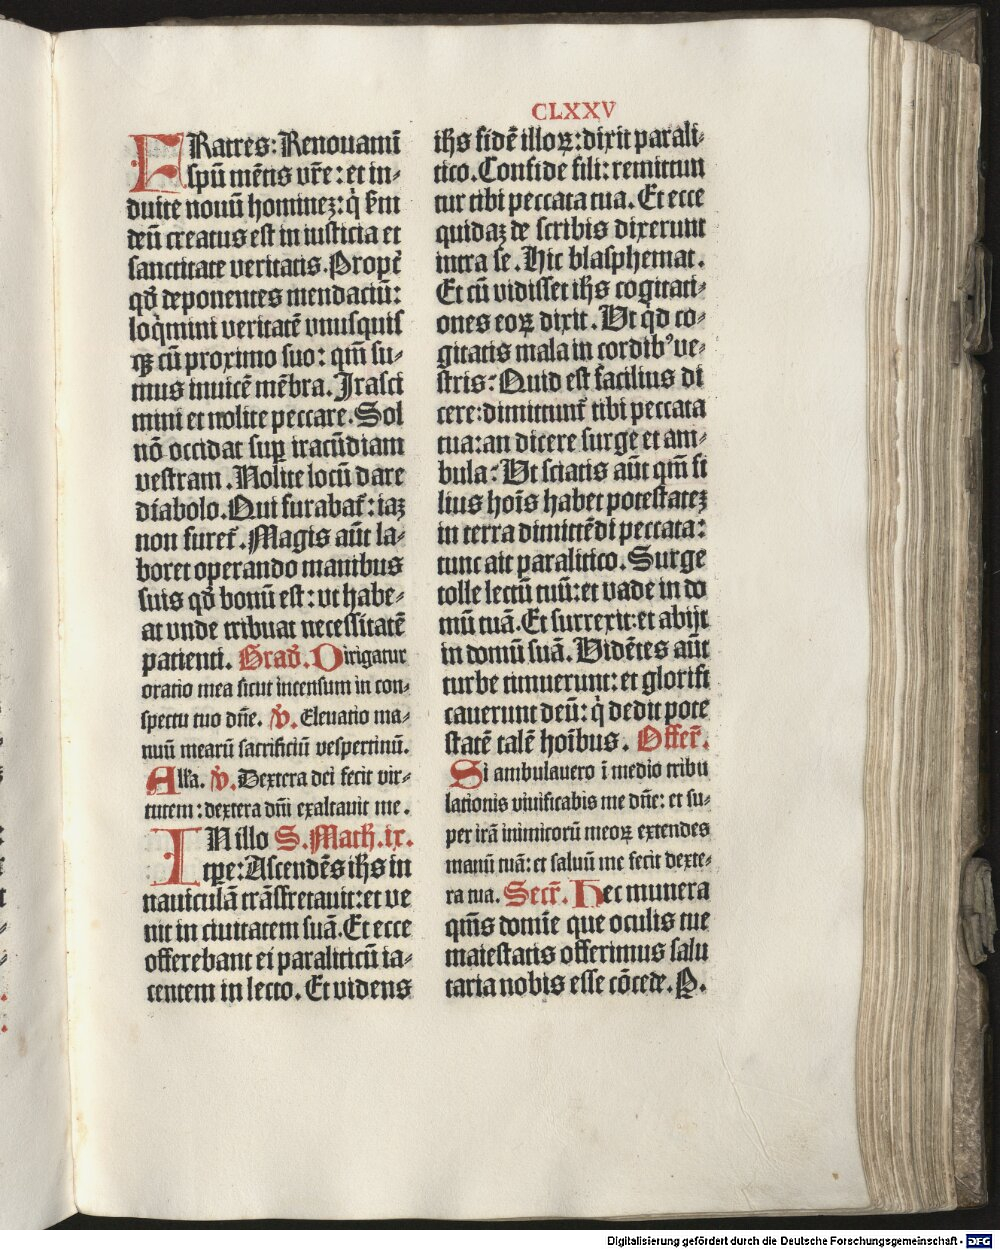 CLXXV
FRatres: Renouami᷑
spū mētis vr̄e: et in⸗
duite nouū hominez: q̇ ẜm
deū creatus est in iusticia et
sanctitate veritatis. Propt̄
qd̄ deponentes mendaciū:
loq̇mini veritatē vnusquis
qꝫ cū proximo suo: qm̄ su⸗
mus inuicē mēbra. Irasci
mini et nolite peccare. Sol
nō occidat suꝑ iracūdiam
vestram. Nolite locū dare
diabolo. Qui furabat᷑: iaꝫ
non furet᷑. Magis aūt la⸗
boret operando manibus
suis qd̄ bonū est: vt habe⸗
at vnde tribuat necessitatē
patienti. Grad̄. Dirigatur
oratio mea sicut incensum in con⸗
spectu tuo dn̄e. v̇. Eleuatio ma⸗
nuū mearū sacrificiū vespertinū.
Alľa. v̇. Dextera dei fecit vir⸗
tutem: dextera dn̄i exaltauit me.
IN illo S. Math̄. ix.
tꝑe: Ascendēs ih̄s in
nauiculā trāsfretauit: et ve
nit in ciuitatem suā. Et ecce
offerebant ei paraliticū ia⸗
centem in lecto. Et videns
ih̄s fidē illoꝝ: dixit parali⸗
tico. Confide fili: remittun
tur tibi peccata tua. Et ecce
quidaꝫ de scribis dixerunt
intra se. Hic blasphemat.
Et cū vidisset ih̄s cogitati⸗
ones eoꝝ dixit. Vt qd̄ co⸗
gitatis mala in cordibꝰ ve⸗
stris: Quid est facilius di
cere: dimittunt᷑ tibi peccata
tua: an dicere surge et am⸗
bula: Vt sciatis aūt qm̄ fi
lius hoīs habet potestateꝫ
in terra dimittēdi peccata:
tunc ait paralitico. Surge
tolle lectū tuū: et vade in do
mū tuā. Et surrexit: et abijt
in domū suā. Vidētes aūt
turbe timuerunt: et glorifi
cauerunt deū: q̇ dedit pote
statē talē hoībus. Offer̄.
Si ambulauero ī medio tribu
lationis viuificabis me dn̄e: et su⸗
per irā inimicorū meoꝝ extendes
manū tuā: et saluū me fecit dexte⸗
ra tua. Secr̄. Hec munera
qm̄s domīe que oculis tue
maiestatis offerimus salu
taria nobis esse cōcede. P.
Digitalisierung gefördert durch die Deutsche Forschungsgemeinschaft - DFG